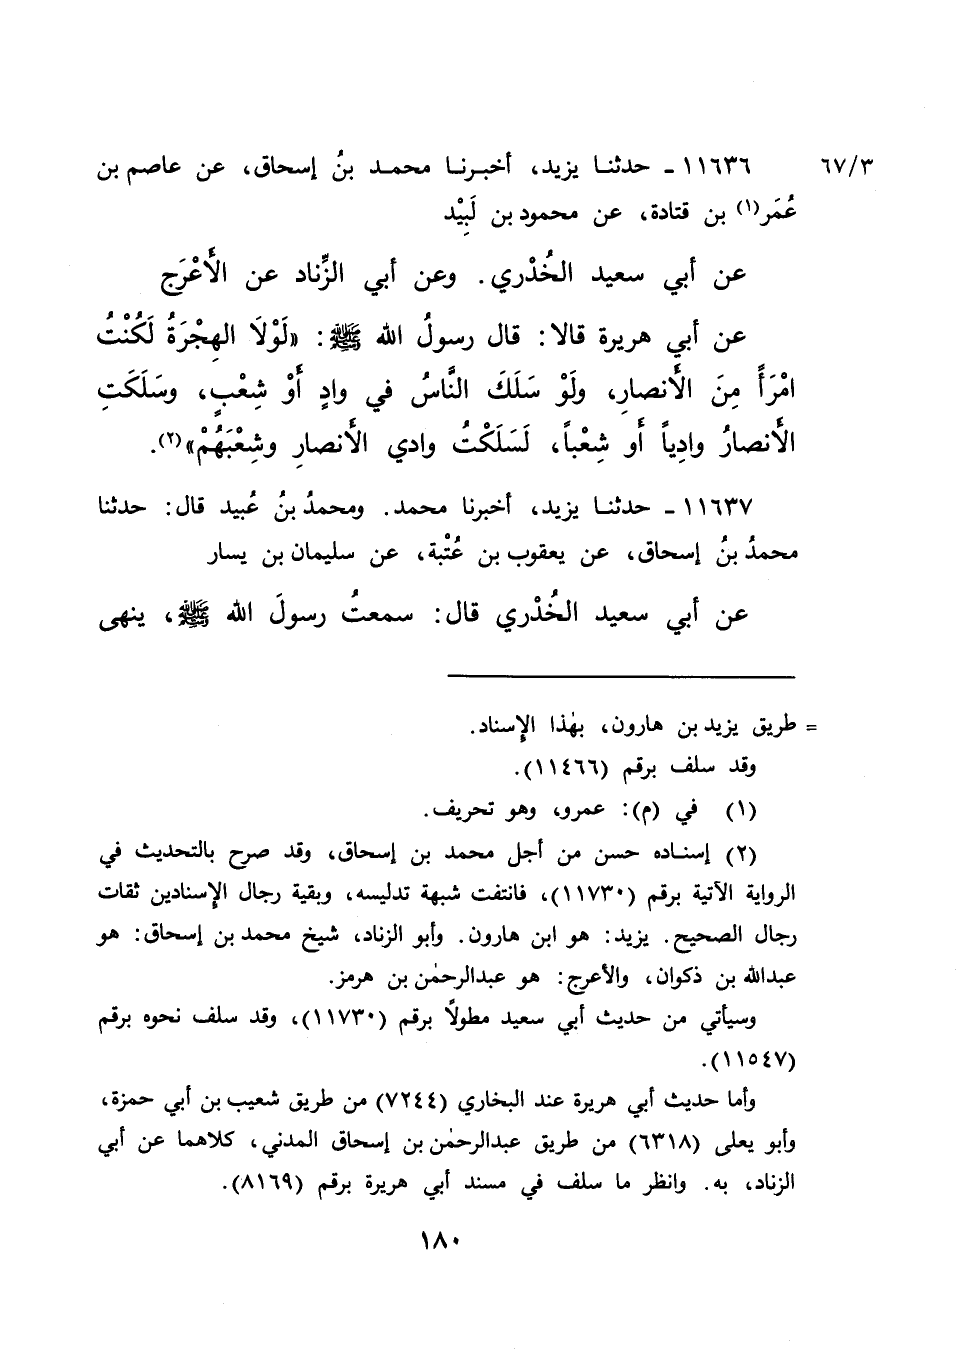 ٦٧/٣ ١١٦٣٦ ـ حدثنا يزيد، أخبرنا محمد بنُ إسحاق، عن عاصم بن
عُمَر(١) بن قتادة، عن محمود بن لَبِيْد
عن أبي سعيد الخُدْري. وعن أبي الزِّناد عن الأَعْرَج
عن أبي هريرة قالا: قال رسولُ الله ﷺ: «لَوْلَا الهِجْرَةُ لَكُنْتُ
امْرَأً مِنَ الأَنصارِ، ولَوْ سَلَكَ النَّاسُ في وادٍ أَوْ شِعْبٍ، وسَلَكَتِ
الأَنصارُ وادِياً أَو شِعْباً، لَسَلَكْتُ وادي الأَنصارِ وشِعْبَهُمْ»(٢).
١١٦٣٧ ـ حدثنا يزيد، أخبرنا محمد. ومحمدُ بنُ عُبيد قال: حدثنا
محمدُ بنُ إسحاق، عن يعقوب بن عُتْبة، عن سليمان بن يسار
عن أبي سعيد الخُدْري قال: سمعتُ رسولَ الله ﷺ، ينهى
= طريق يزيد بن هارون، بهٰذا الإسناد.
وقد سلف برقم (١١٤٦٦).
(١) في (م): عمرو، وهو تحريف.
(٢) إسناده حسن من أجل محمد بن إسحاق، وقد صرح بالتحديث في
الرواية الآتية برقم (١١٧٣٠)، فانتفت شبهة تدليسه، وبقية رجال الإسنادين ثقات
رجال الصحيح. يزيد: هو ابن هارون. وأبو الزناد، شيخ محمد بن إسحاق: هو
عبدالله بن ذكوان، والأعرج: هو عبدالرحمٰن بن هرمز.
وسيأتي من حديث أبي سعيد مطولاً برقم (١١٧٣٠)، وقد سلف نحوه برقم
(١١٥٤٧).
وأما حديث أبي هريرة عند البخاري (٧٢٤٤) من طريق شعيب بن أبي حمزة،
وأبو يعلى (٦٣١٨) من طريق عبدالرحمٰن بن إسحاق المدني، كلاهما عن أبي
الزناد، به. وانظر ما سلف في مسند أبي هريرة برقم (٨١٦٩).
١٨٠